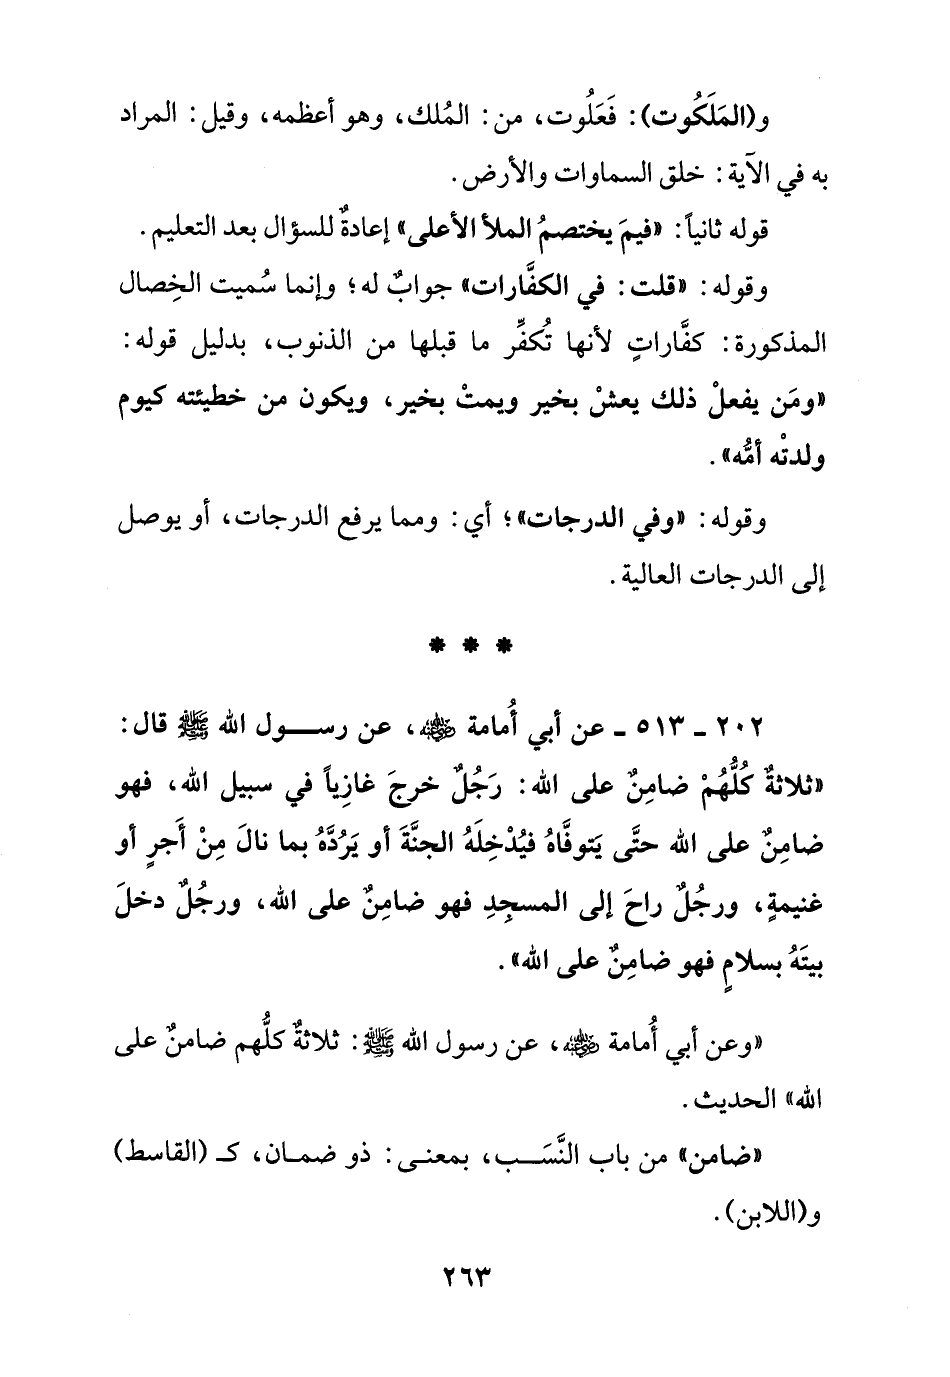 و(المَلَكُوت): فَعَلُوت، من: المُلك، وهو أعظمه، وقيل: المراد
به في الآية: خلق السماوات والأرض.
قوله ثانياً: «فيمَ يختصمُ الملأ الأعلى» إعادةٌ للسؤال بعد التعليم.
وقوله: «قلت: في الكفَّارات» جوابٌ له؛ وإنما سُميت الخِصال
المذكورة: كفَّاراتٍ لأنها تُكفِّر ما قبلها من الذنوب، بدليل قوله:
«ومَن يفعلْ ذلك يعشْ بخير ويمتْ بخير، ويكون من خطيئته كيوم
ولدتْه أمُّه».
وقوله: «وفي الدرجات»؛ أي: ومما يرفع الدرجات، أو يوصل
إلى الدرجات العالية.
* * *
٢٠٢ ـ ٥١٣ ـ عن أبي أُمامة ﵁، عن رســول الله ﷺ قال:
«ثلاثةٌ كُلُّهُمْ ضامِنٌ على الله: رَجُلٌ خرجَ غازِياً في سبيل الله، فهو
ضامِنٌ على الله حتَّى يَتوفَّاهُ فيُدْخِلَهُ الجنَّةَ أو يَرُدَّهُ بما نالَ مِنْ أَجرٍ أو
غنيمةٍ، ورجُلٌ راحَ إلى المسجِدِ فهو ضامِنٌ على الله، ورجُلٌ دخلَ
بيتَهُ بسلامٍ فهو ضامِنٌ على الله».
«وعن أبي أُمامة ﵁، عن رسول الله ﷺ: ثلاثةٌ كلُّهم ضامنٌ على
الله» الحديث.
«ضامن» من باب النَّسَــب، بمعنـى: ذو ضمـان، كـ (القاسط)
و(اللابن).
٢٦٣